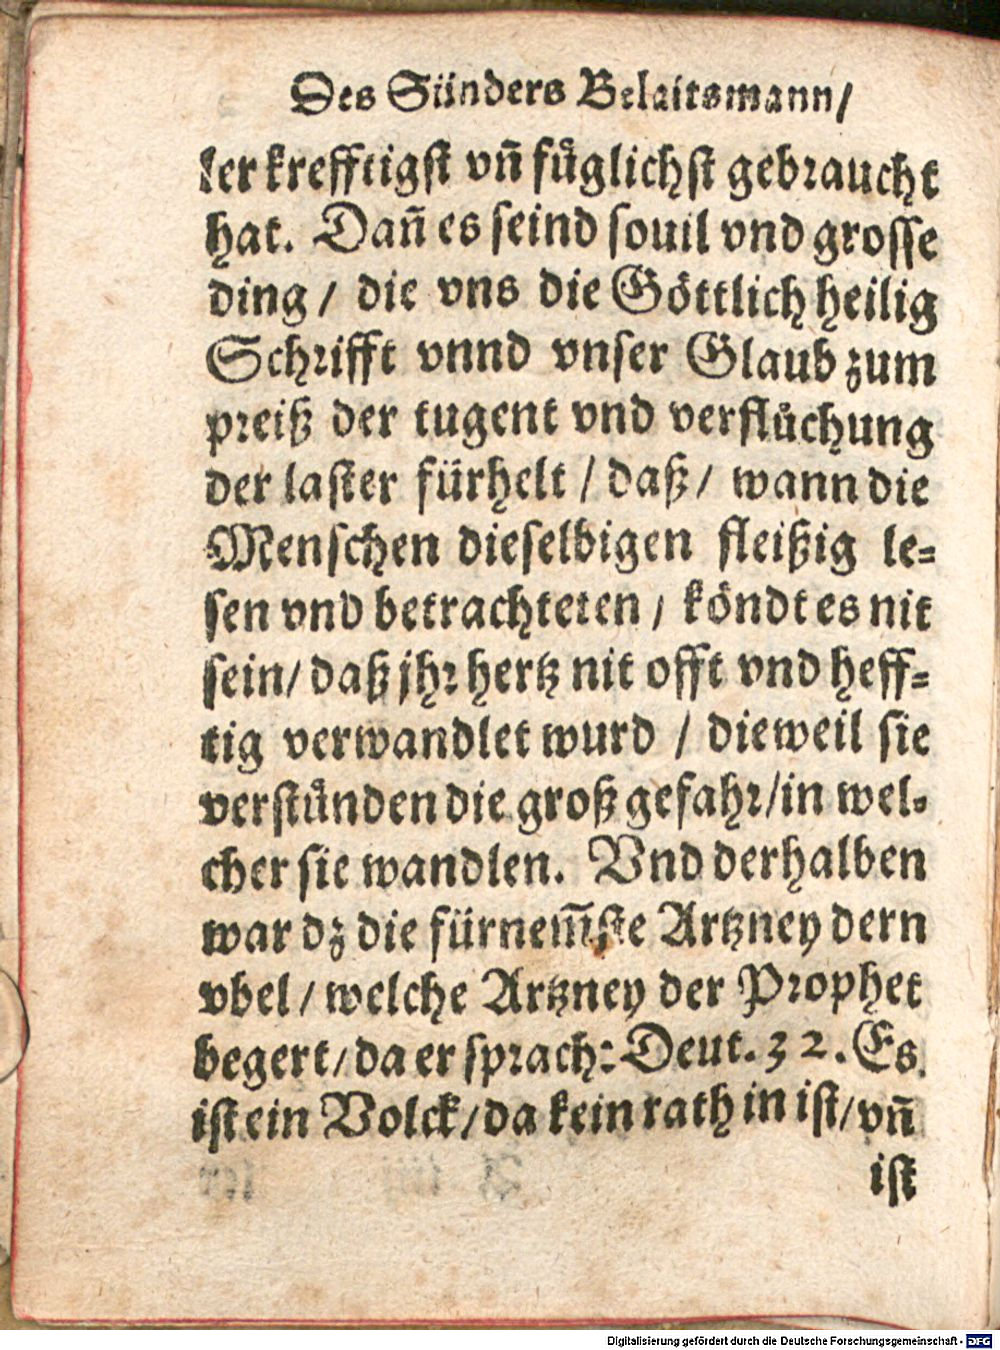 Des Sünders Belaitsmann/
ler krefftigst vñ fůglichst gebraucht
hat. Dañ es seind souil vnd grosse
ding/ die vns die Göttlich heilig
Schrifft vnnd vnser Glaub zum
preiß der tugent vnd verflůchung
der laster fürhelt/ daß/ wann die
Menschen dieselbigen fleißig le=
sen vnd betrachteten/ köndt es nit
sein/ daß jhr hertz nit offt vnd heff=
tig verwandlet wurd/ dieweil sie
verstůnden die groß gefahr/ in wel=
cher sie wandlen. Vnd derhalben
war dz die fürnem̃ste Artzney dern
vbel/ welche Artzney der Prophet
begert/ da er sprach: Deut. 32. Es
ist ein Volck/ da kein rath in ist/ vñ
ist
Digitalisierung gefördert durch die Deutsche Forschungsgemeinschaft - DFG